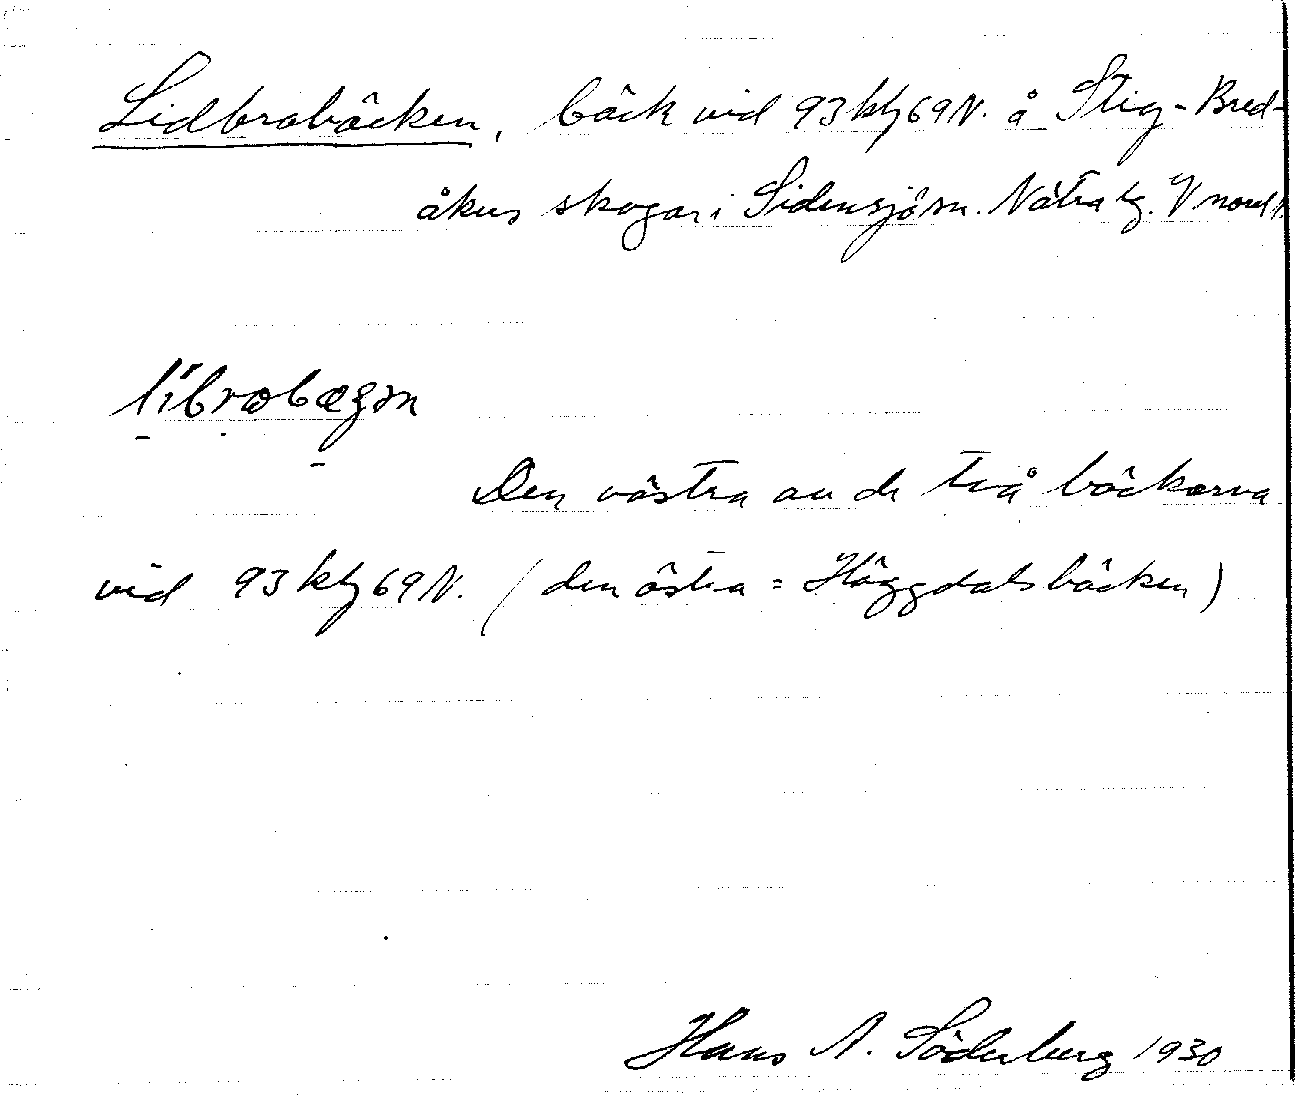 Lidbrobäcken, bäck vid 93 klj 69 N. å Stig-Bred-
åkers skogar i Sidensjö sn. Nätra tg. V norrl.
librobægən
Den västra av de två bäckarna
vid 93 klj 69 N. (den östra = Häggdalsbäcken)
Hans A. Söderberg 1930